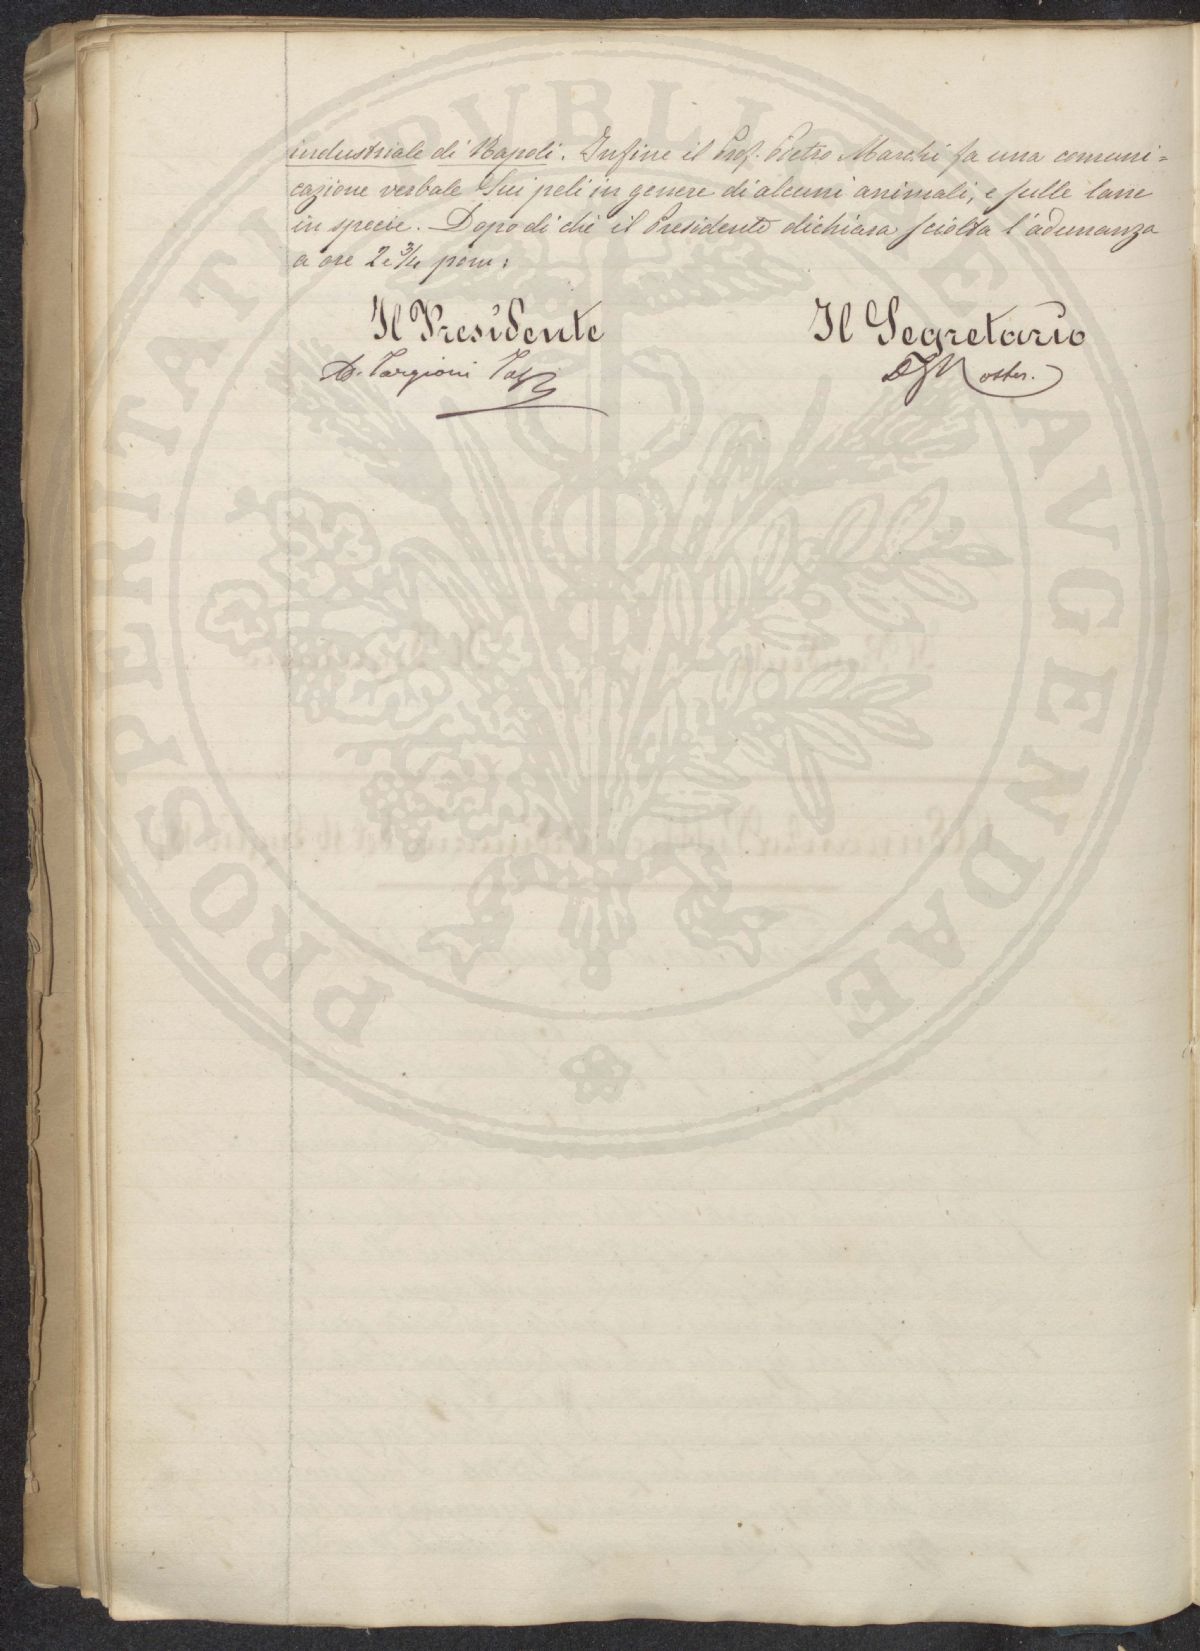 industriale di Napoli. Infine il Prof. Pietro Marchi fa una comuni=
cazione verbale sui peli in genere di alcuni animali, e sulle lane
in specie. Dopo di che il Presidente dichiara sciolta l'adunanza
a ore 2 e 3/4 pom:
Il Presidente
Il Segretario
Targioni
PROSPERITATI PVBLICAE AVGENDAE